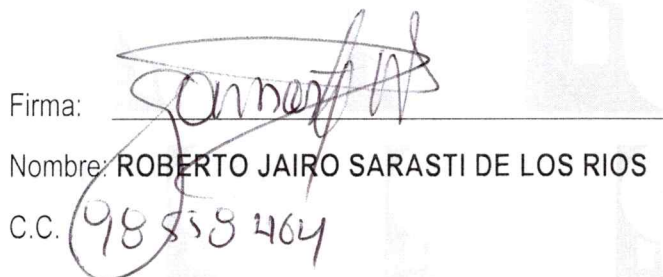 Firma:
Nombre: ROBERTO JAIRO SARASTI DE LOS RIOS
C.C. 98 558 464